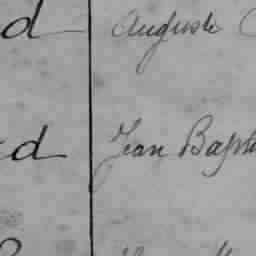 d Auguste
ed Jean Bapti